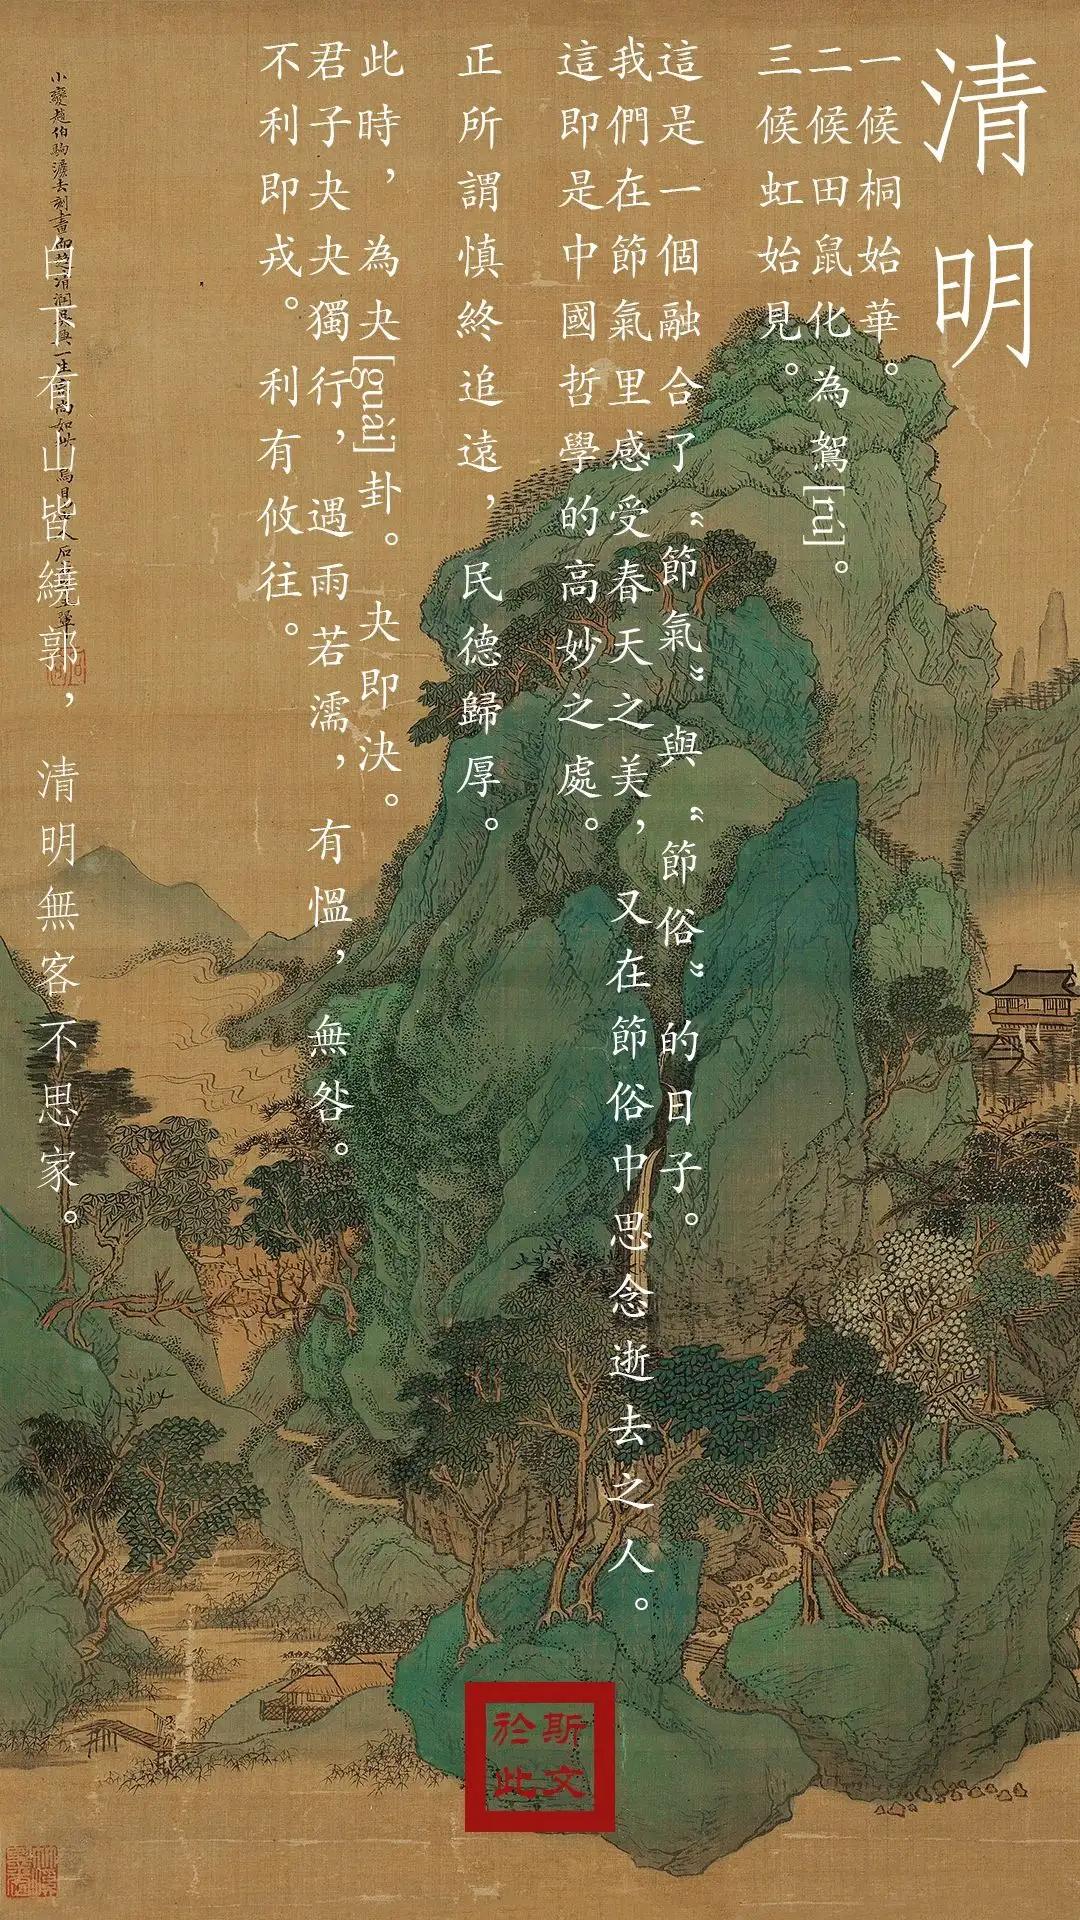 清明
一候桐始華。
二候田鼠化為鴽[rú]。
三候虹始見。
這是一個融合了“節氣”與“節俗”的日子。
我們在節氣里感受春天之美，又在節俗中思念逝去之人。
這即是中國哲學的高妙之處。
正所謂慎終追遠，民德歸厚。
此時，為夬[guài]卦。夬即決。
君子夬夬獨行，遇雨若濡，有慍，無咎。
不利即戎。利有攸往。
白下有山皆繞郭，清明無客不思家。
小變趙伯駒濃去刻畫
斯文
於此